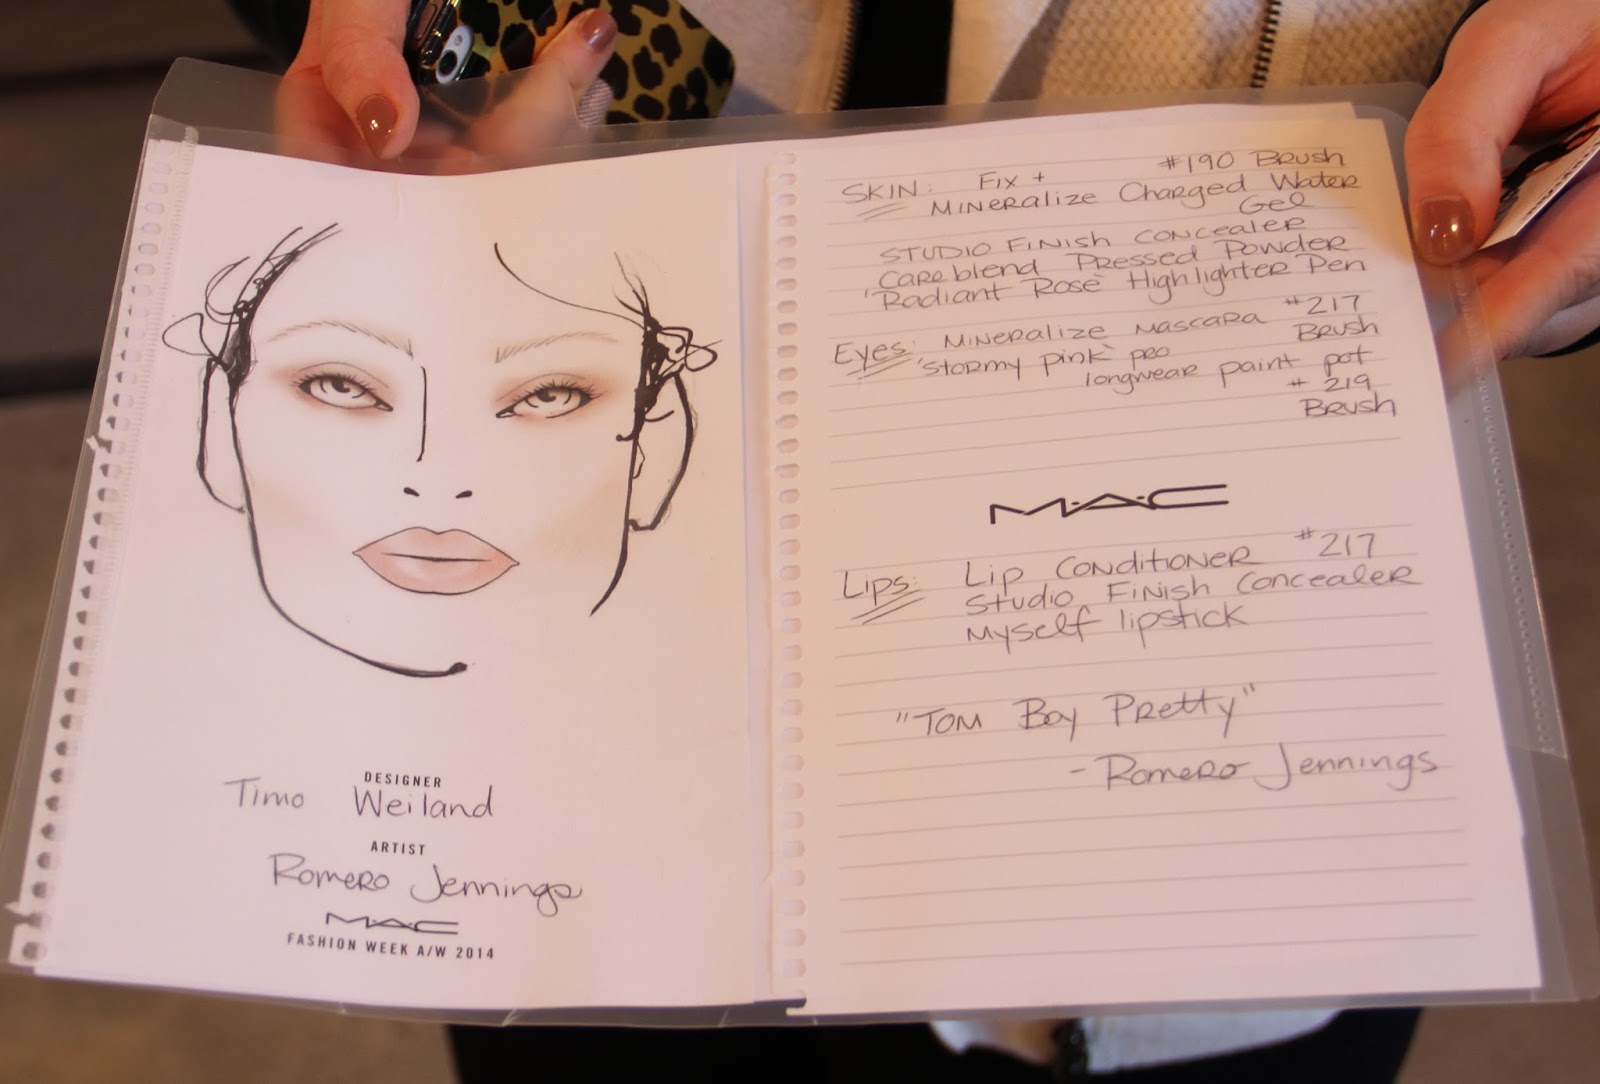 DESIGNER
Timo Weiland
ARTIST
Romero Jennings
MAC
FASHION WEEK A/W 2014
#190 Brush
SKIN: Fix +
Mineralize Charged Water
Gel
Studio Finish Concealer
Careblend Pressed Powder
'Radiant Rose' Highlighter Pen
Eyes: Mineralize Mascara #217
Brush
'Stormy Pink' pro
longwear paint pot
#219
Brush
M·A·C
Lips: Lip Conditioner #217
Studio Finish Concealer
Myself lipstick
"Tom Boy Pretty"
- Romero Jennings